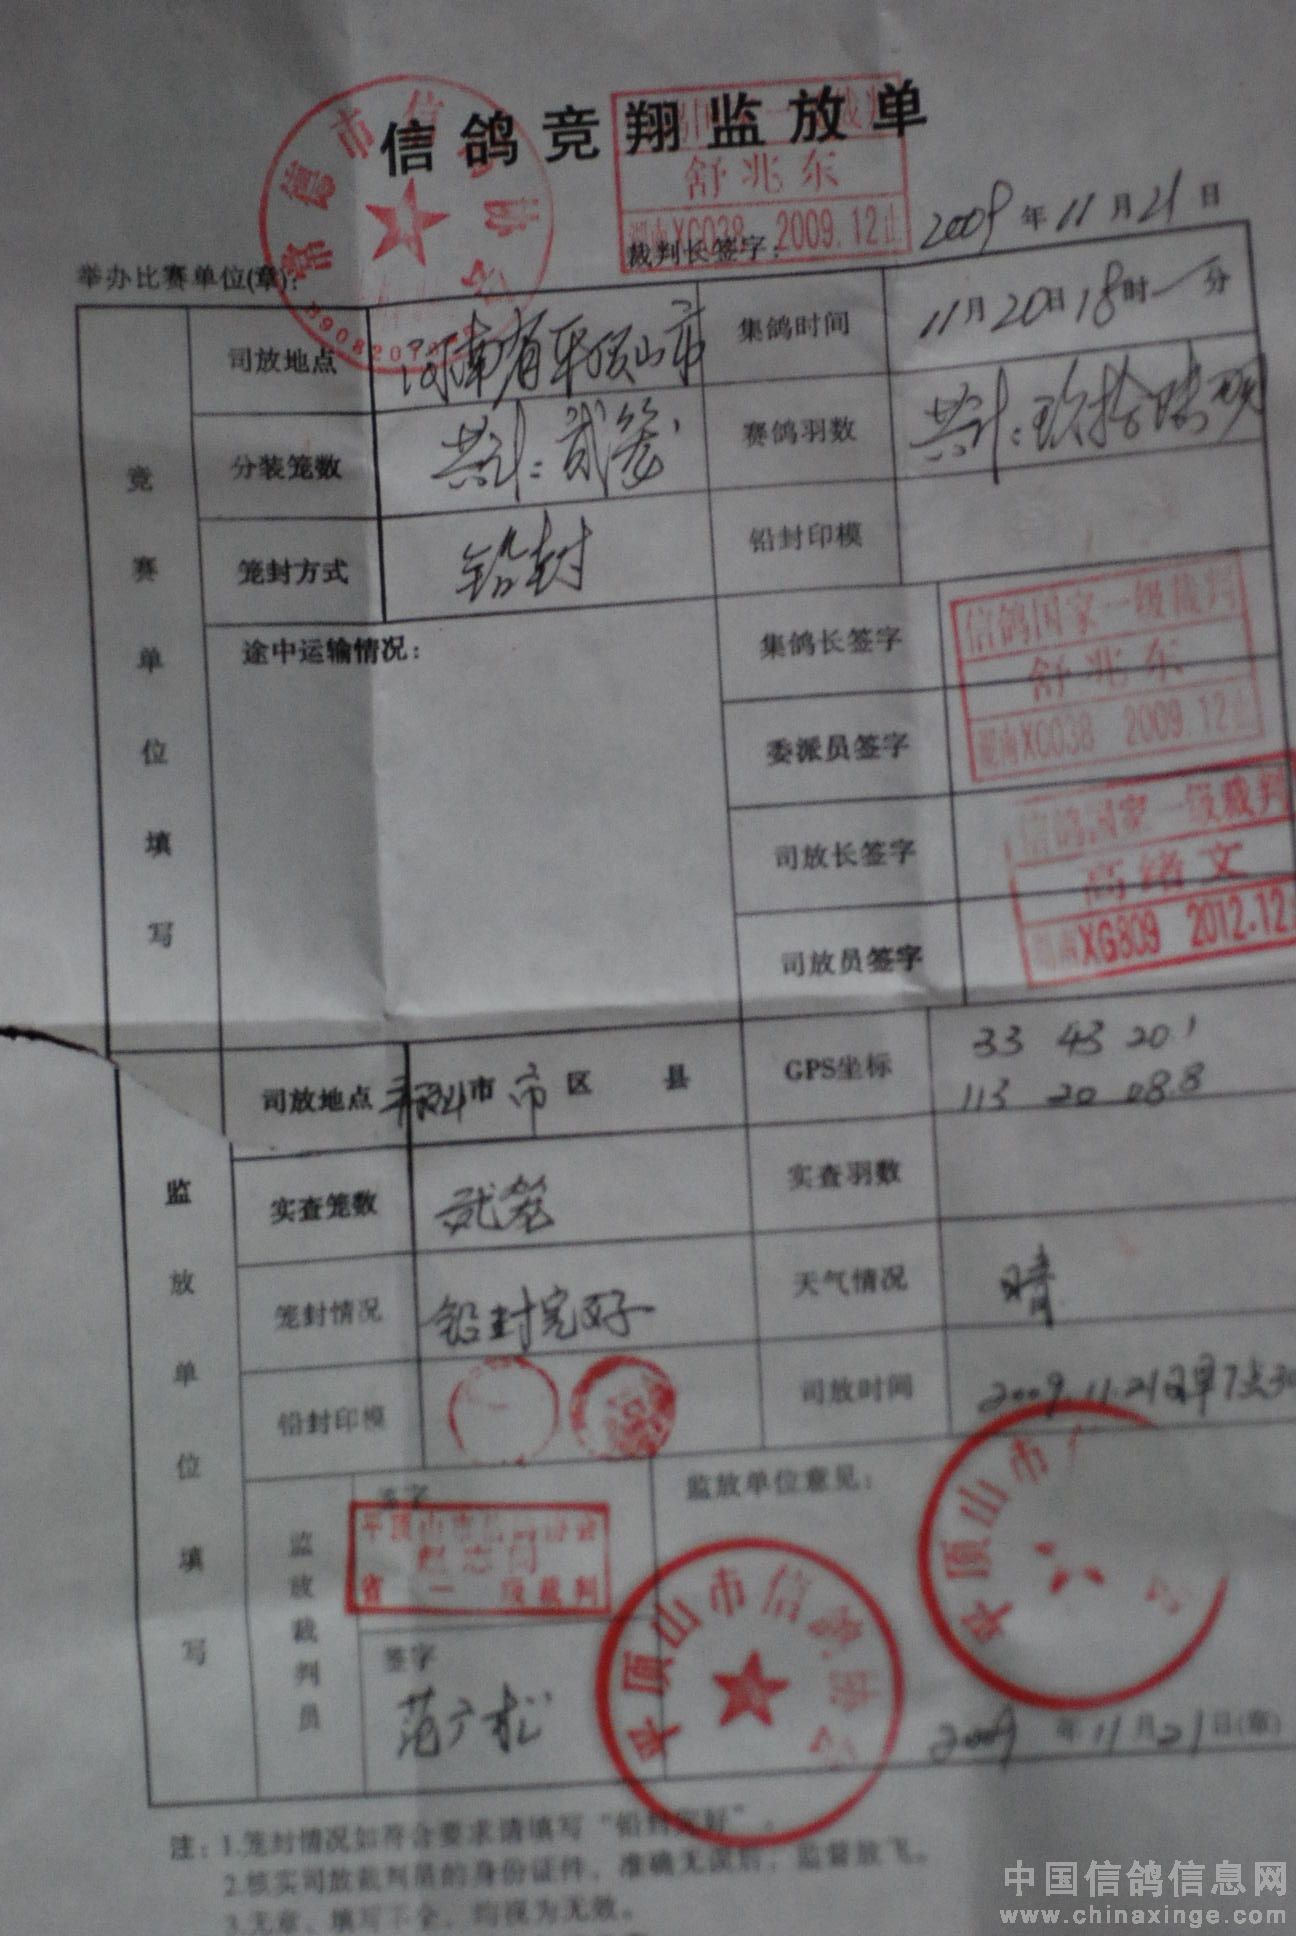 信鸽竞翔监放单
常德市信鸽协会
舒兆东
湖南XC038 2009.12止
举办比赛单位(章):
裁判长签字:
2009年11月21日
竞赛单位填写
司放地点 河南省平顶山市 集鸽时间 11月20日18时一分
分装笼数 共计:贰笼 赛鸽羽数 共计:玖拾陆羽
笼封方式 铅封 铅封印模
途中运输情况:
集鸽长签字
信鸽国家一级裁判
舒兆东
湖南XC038 2009.12止
委派员签字
司放长签字
信鸽国家一级裁判
高绪文
湖南XG809 2012.12
司放员签字
监放单位填写
司放地点 平顶山市 市区 县 GPS坐标 33 43 20.1
113 20 08.8
实查笼数 贰笼 实查羽数
笼封情况 铅封完好 天气情况 晴
铅封印模 司放时间 2009.11.21日早7点30
监放裁判员
签字
平顶山市信鸽协会
省一级裁判
签字
范广松
监放单位意见:
平顶山市信鸽协会
平顶山市
2009年11月21日(章)
注: 1.笼封情况如符合要求请填写“铅封完好”。
2.核实司放裁判员的身份证件,准确无误后,监督放飞。
3.无章、填写不全,均视为无效。
中国信鸽信息网
www.chinaxinge.com